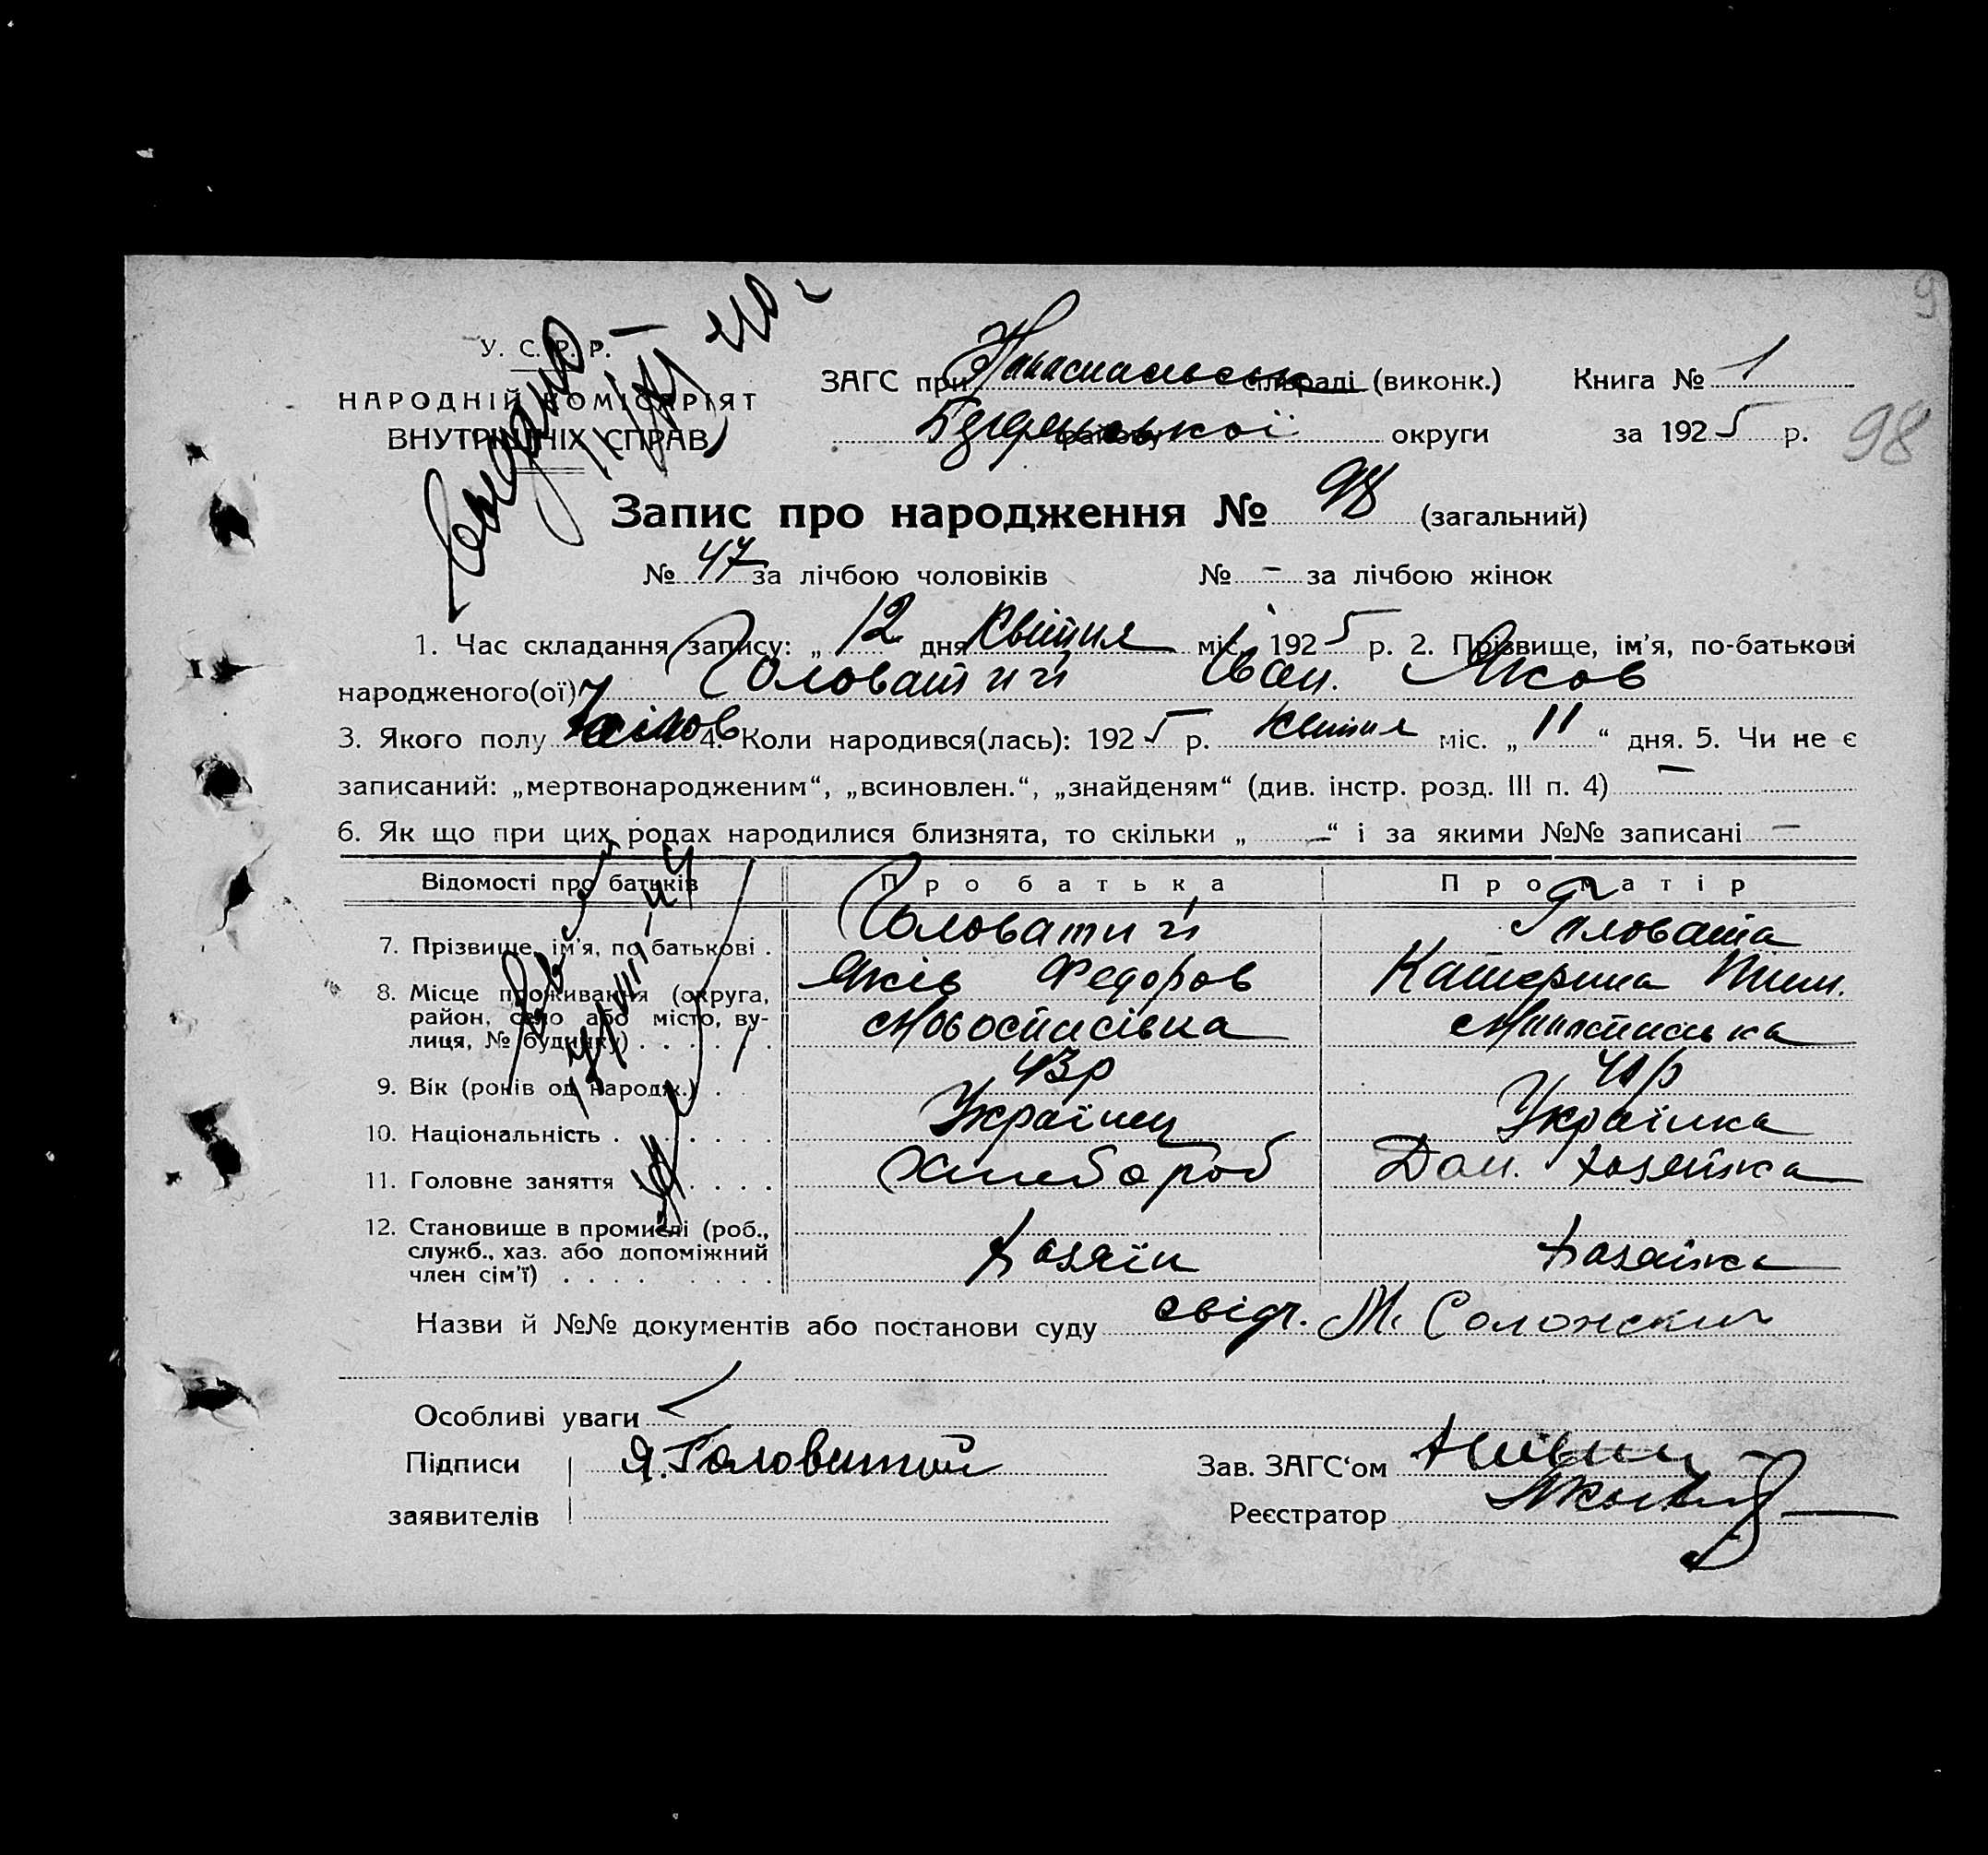 У. С. Р. Р.
НАРОДНІЙ КОМІСАРІЯТ
ВНУТРІШНІХ СПРАВ
ЗАГС при сільраді (виконк.) Книга № 1
округи за 1925 р.
98
Запис про народження № 98 (загальний)
№ 47 за лічбою чоловіків № - за лічбою жінок
1. Час складання запису: „ 12 дня Квітня міс. 1925 р. 2. Прізвище, ім'я, по-батькові
народженого(ої) Головатий Іван. Яков
3. Якого полу 4. Коли народився(лась): 1925 р. квітня міс. „ 11 “ дня. 5. Чи не є
записаний: „мертвонародженим“, „всиновлен.“, „знайденям“ (див. інстр. розд. III п. 4) —
6. Як що при цих родах народилися близнята, то скільки „ — “ і за якими №№ записані —
Відомості про батьків Про батька Про матір
7. Прізвище, ім'я, по батькові . Головатий Головата
Яків Федоров Катерина Тим.
8. Місце проживання (округа,
район, село або місто, ву-
лиця, № будинку) . . . . . Новоспасівка
9. Вік (років од народж.) . 43р 41р
10. Національність . . . . . . Українец Українка
11. Головне заняття . . . . . Хлебороб Дом. хозяйка
12. Становище в промислі (роб.,
служб., хаз. або допоміжний
член сім'ї) . . . . . . . . Хозяїн Хозяйка
Назви й №№ документів або постанови суду свідч. М.
Особливі уваги
Підписи Я. Головатий Зав. ЗАГС‘ом
заявителів Реєстратор